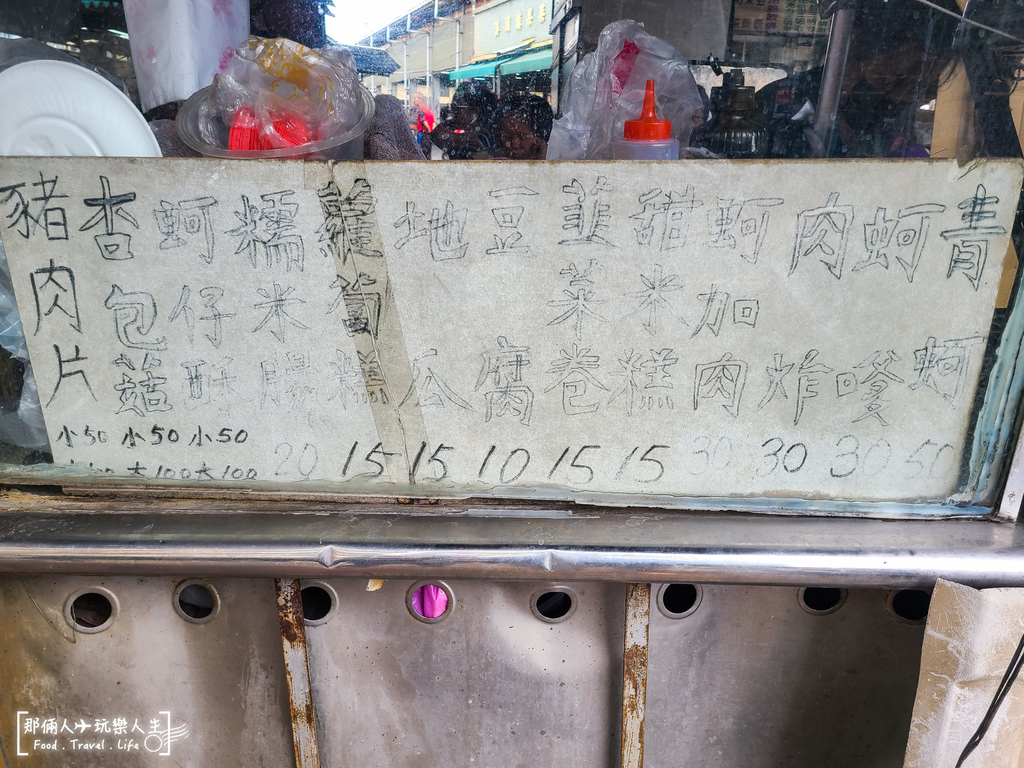 青蚵 50
蚵嗲 30
肉炸 30
蚵加肉 30
甜米糕 15
韭菜卷 15
豆腐 10
地瓜 15
蘿蔔糕 15
糯米腸 20
蚵仔酥 小50 大100
杏包菇 小50 大100
豬肉片 小50
那倆人玩樂人生
Food . Travel . Life